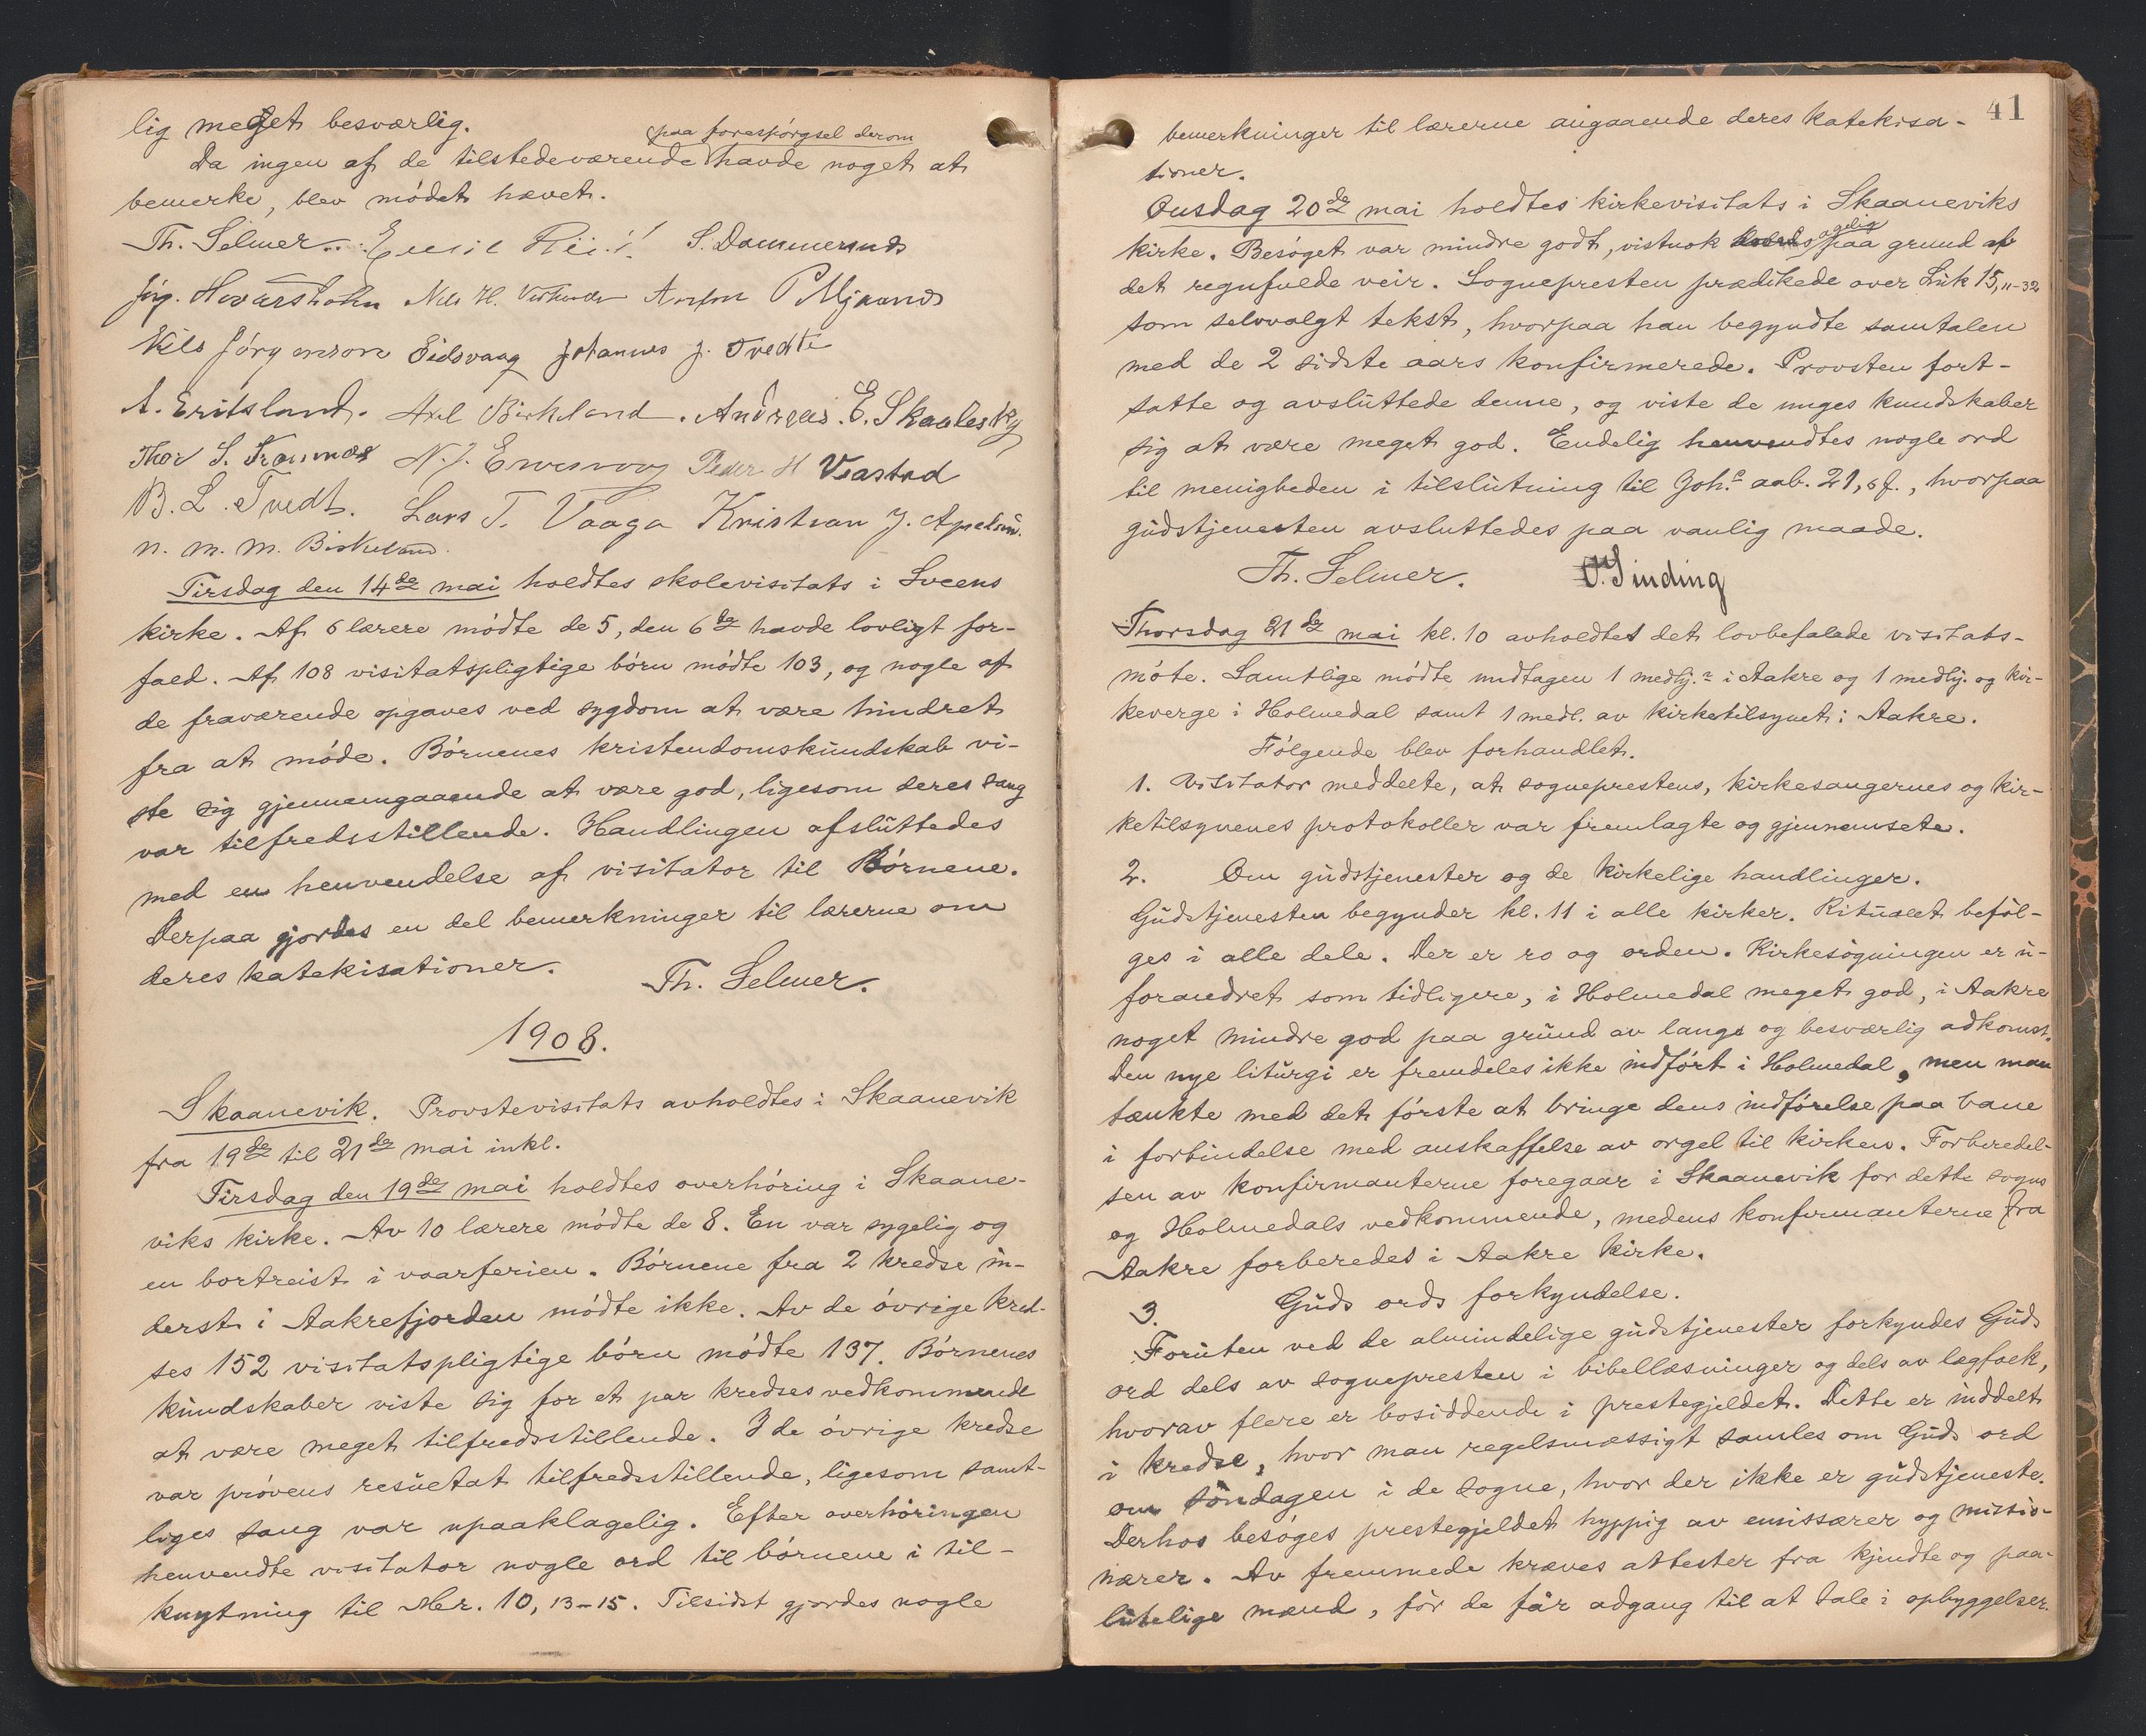 lig meget besværlig.
paa forespørgsel derom
Da ingen af de tilstedeværende havde noget at
bemerke, blev mødet hævet.
Th. Selmer. S. Dammerud
Jørg. Hovarsholm Nils H. P Mjaanes
Nils Jørgenson Eidsvaag Johannes J. Tvedte
A. Eritsland. Axel Birkeland. Andreas. E. Skaalesky
Thor S. Peder H Vrastad
B. L. Tvedt. Lars T. Vaaga Kristian J.
N. M. M. Birkeland.
Tirsdag den 14de mai holdtes skolevisitats i Sveens
kirke. Af 6 lærere mødte de 5, den 6de havde lovligt for-
fald. Af 108 visitatspligtige børn mødte 103, og nogle af
de fraværende opgaves ved sygdom at være hindret
fra at møde. Børnenes kristendomskundskab vi-
ste sig gjennemgaaende at være god, ligesom deres sang
var tilfredsstillende. Handlingen afsluttedes
med en henvendelse af visitator til Børnene.
Derpaa gjordes en del bemerkninger til lærerne om
deres katekisationer.
Th. Selmer.
1908.
Skaanevik. Provstevisitats avholdtes i Skaanevik
fra 19de til 21de mai inkl.
Tirsdag den 19de mai holdtes overhøring i Skaane-
viks kirke. Av 10 lærere mødte de 8. En var sygelig og
en bortreist i vaarferien. Børnene fra 2 kredse in-
derst i Aakrefjorden mødte ikke. Av de øvrige kred-
ses 152 visitatspligtige børn mødte 137. Børnenes
kundskaber viste sig for et par kredses vedkommende
at være meget tilfredsstillende. I de øvrige kredse
var prøvens resultat tilfredsstillende, ligesom samt-
liges sang var upaaklagelig. Efter overhøringen
henvendte visitator nogle ord til børnene i til-
knytning til Mr. 10, 13-15. Tilsidst gjordes nogle
41
bemerkninger til lærerne angaaende deres katekisa-
tioner.
Onsdag 20de mai holdtes kirkevisitats i Skaaneviks
kirke. Besøget var mindre godt, vistnok paa grund af
det regnfulde veir. Sognepresten prædikede over Luk 15, 11-32
som selvvalgt tekst, hvorpaa han begyndte samtalen
med de 2 sidste aars konfirmerede. Provsten fort-
satte og avsluttede denne, og viste de unges kundskaber
sig at være meget god. Endelig henvendtes nogle ord
til menigheden i tilslutning til Joh.s aab. 21, 6 f., hvorpaa
gudstjenesten avsluttedes paa vanlig maade.
Th. Selmer. O. Sinding
Thorsdag 21de mai kl. 10 avholdtes det lovbefalede visitats-
møte. Samtlige mødte undtagen 1 medhj.r i Aakre og 1 medhj. og kir-
keverge i Holmedal samt 1 medl. av kirketilsynet i Aakre.
Følgende blev forhandlet.
1. Visitator meddelte, at sogneprestens, kirkesangernes og kir-
ketilsynenes protokoller var fremlagte og gjennemsete.
2. Om gudstjenester og de kirkelige handlinger.
Gudstjenesten begynder kl. 11 i alle kirker. Ritualet beføl-
ges i alle dele. Der er ro og orden. Kirkesøgningen er u-
forandret som tidligere, i Holmedal meget god, i Aakre
noget mindre god paa grund av lange og besværlig adkomst.
Den nye liturgi er fremdeles ikke indført i Holmedal, men man
tænkte med det første at bringe dens indførelse paa bane
i forbindelse med anskaffelse av orgel til kirken. Forberedel-
sen av konfirmanterne foregaar i Skaanevik for dette sogns
og Holmedals vedkommende, medens konfirmanterne fra
Aakre forberedes i Aakre kirke.
3. Guds ords forkyndelse.
Foruten ved de almindelige gudstjenester forkyndes Guds
ord dels av sognepresten i bibellæsninger og dels av lægfolk,
hvorav flere er bosiddende i prestegjeldet. Dette er inddelt
i kredse, hvor man regelsmæssigt samles om Guds ord
om søndagen i de sogne, hvor der ikke er gudstjeneste.
Derhos besøges prestegjeldet hyppig av emissærer og missio-
nærer. Av fremmede kræves attester fra kjendte og paa-
litelige mænd, før de får adgang til at tale i opbyggelser.